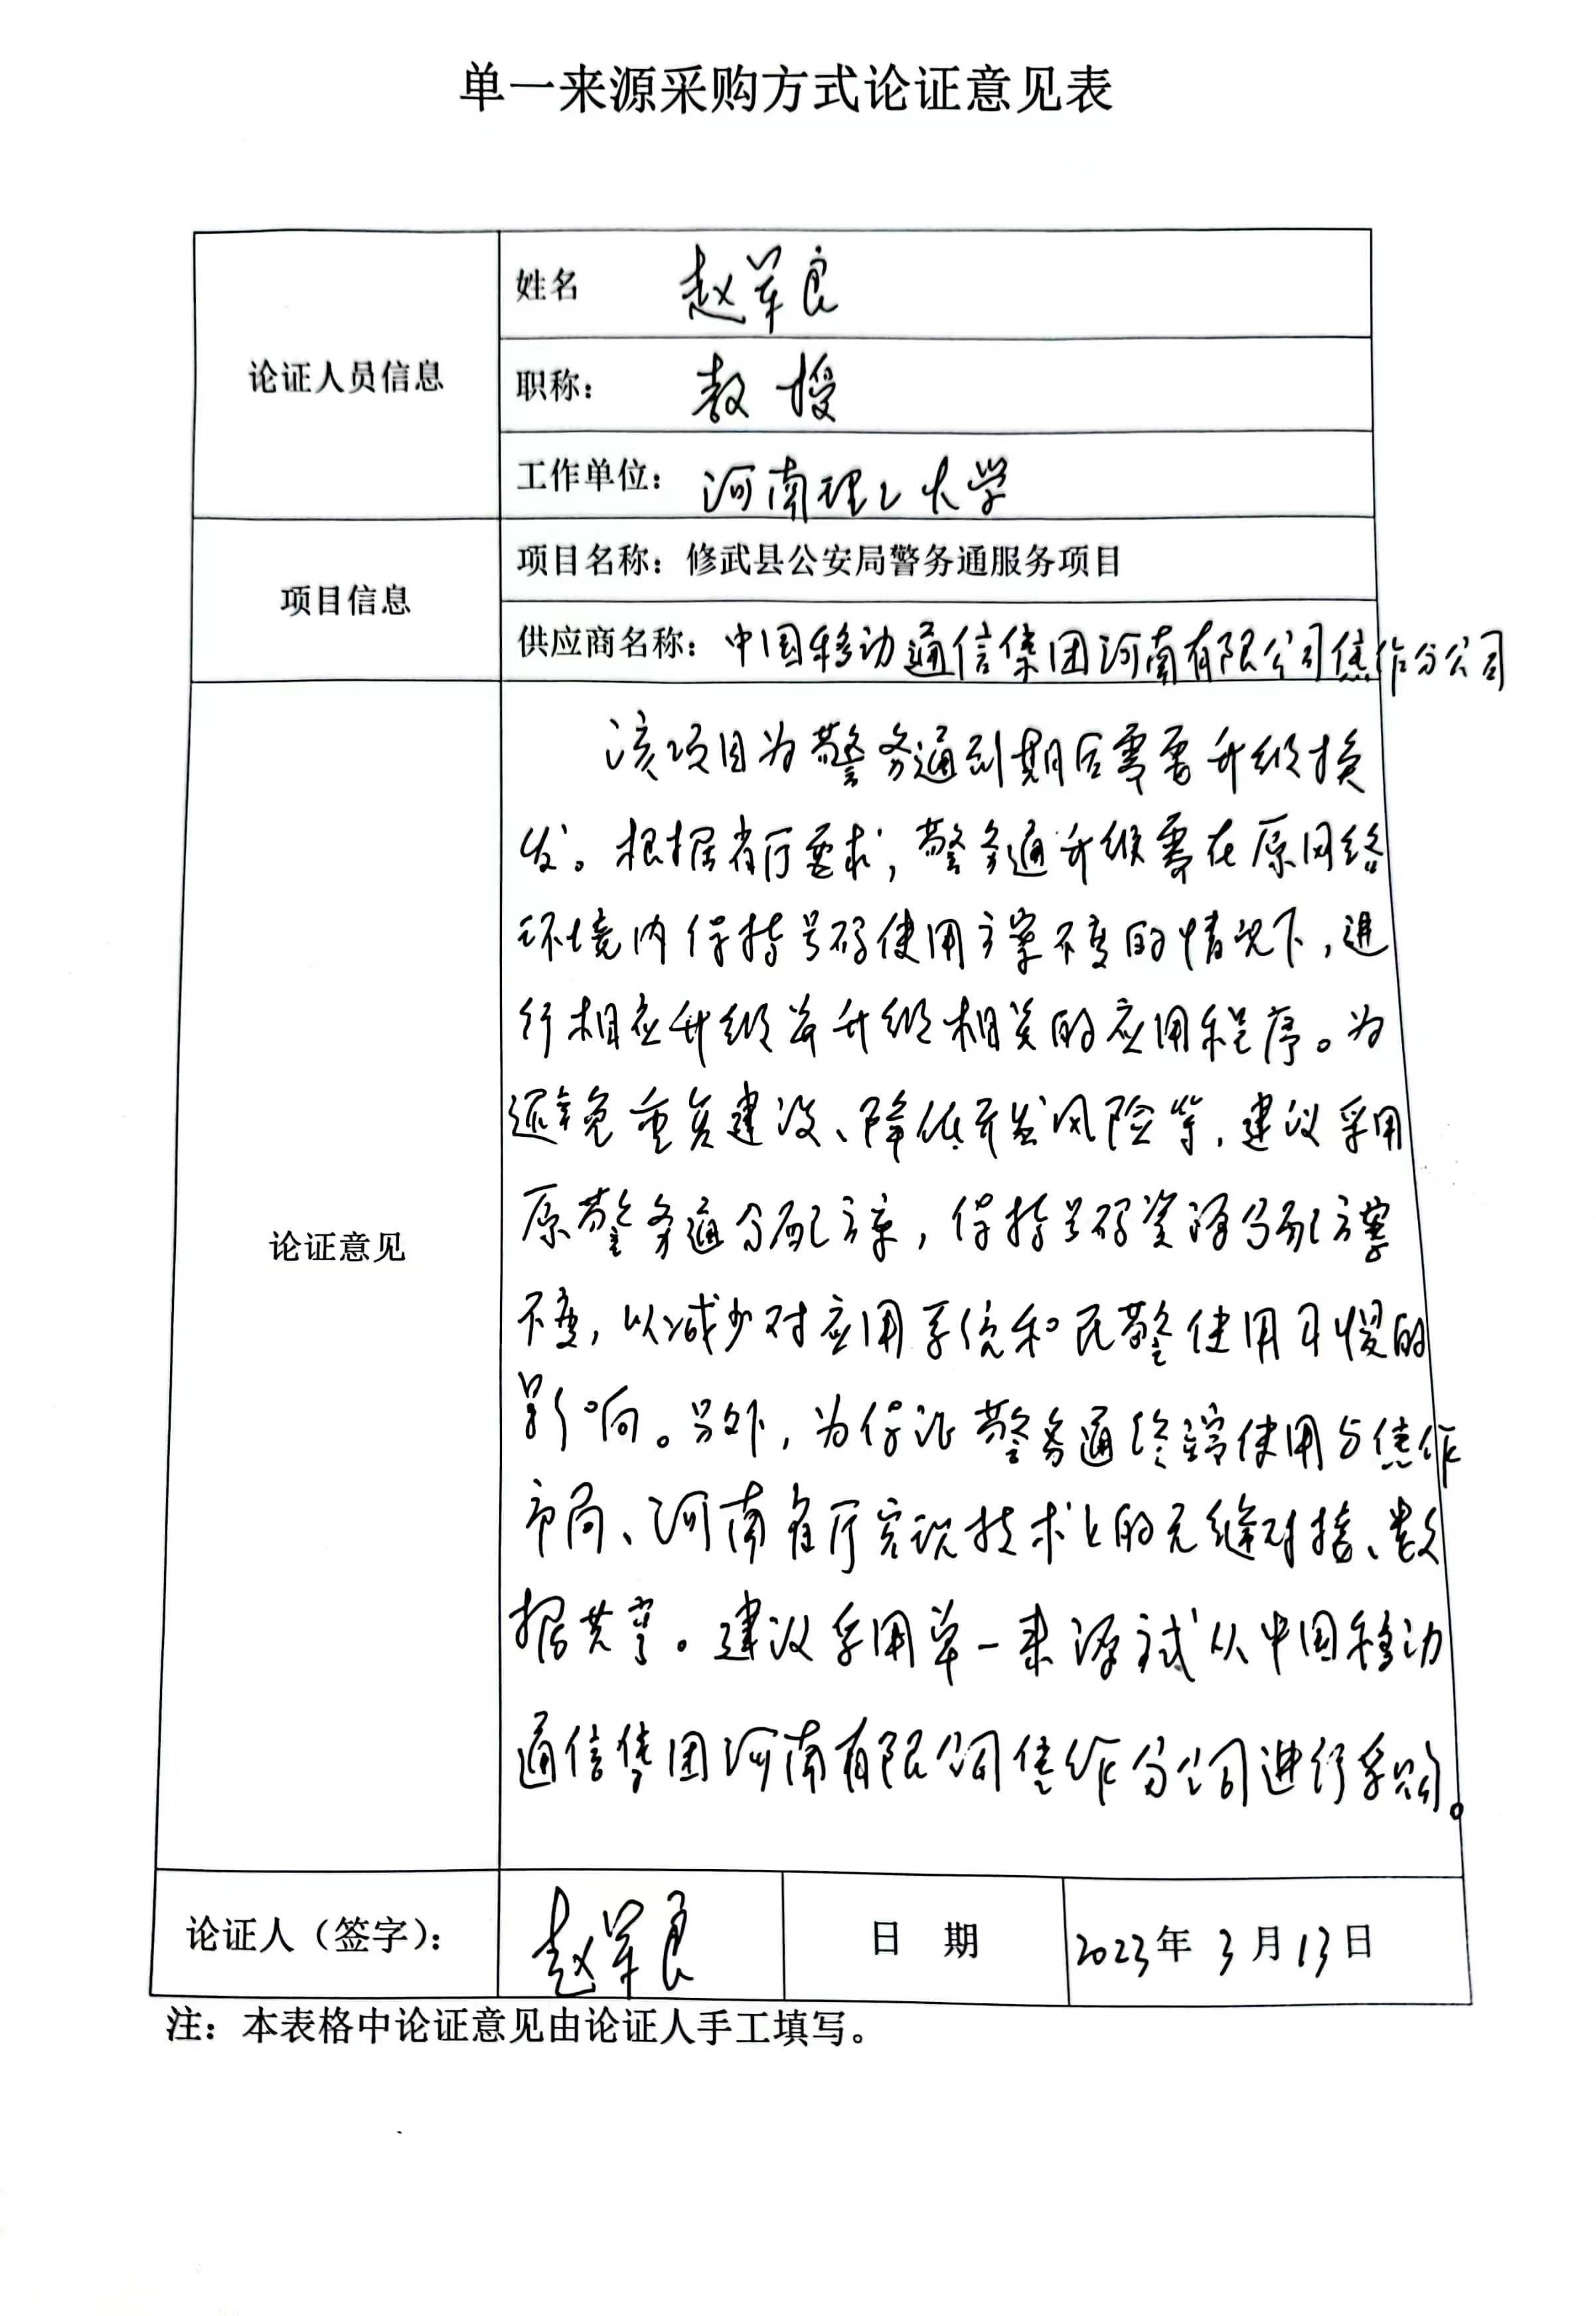 单一来源采购方式论证意见表
论证人员信息
姓名 赵军良
职称： 教授
工作单位： 河南理工大学
项目信息
项目名称：修武县公安局警务通服务项目
供应商名称：中国移动通信集团河南有限公司焦作分公司
论证意见
该项目为警务通到期后需要升级换
发。根据省厅要求，警务通升级需在原网络
环境内保持号码使用方案不变的情况下，进
行相应升级并升级相关的应用程序。为
避免重复建设、降低开发风险等，建议采用
原警务通分配方案，保持号码资源分配方案
不变，以减少对应用系统和民警使用习惯的
影响。另外，为保证警务通终端使用与焦作
市局、河南省厅实现技术上的无缝对接、数
据共享。建议采用单一来源方式从中国移动
通信集团河南有限公司焦作分公司进行采购。
论证人（签字）： 赵军良 日 期 2023年 3月13日
注：本表格中论证意见由论证人手工填写。